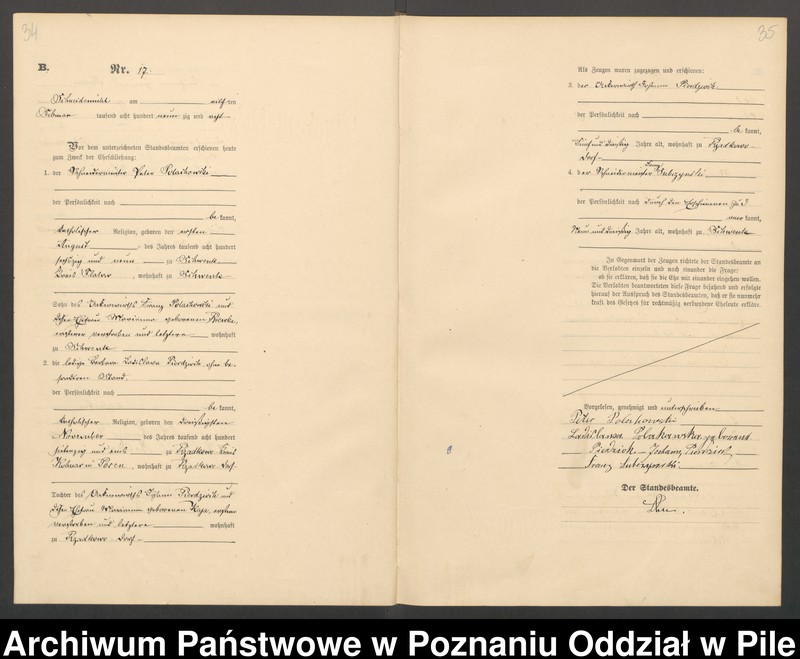 34
B.
Nr. 17.
Schneidemühl am
Februar tausend acht hundert neun zig und
Vor dem unterzeichneten Standesbeamten erschienen heute
zum Zweck der Eheschließung:
1. der Schneidermeister Peter Polachowski
der Persönlichkeit nach
be kannt,
katholischer Religion, geboren den ersten
August des Jahres tausend acht hundert
sechszig und neun zu Schwente
Kreis Flatow, wohnhaft zu Schwente
Sohn des Ackerwirths Franz Polachowski und
dessen Ehefrau Marianna geborenen
ersterer verstorben und letztere wohnhaft
zu Schwente
2. die ledige Barbara Ladislawa ohne be-
sonderen Stand,
der Persönlichkeit nach
be kannt,
katholischer Religion, geboren den dreißigsten
November des Jahres tausend acht hundert
siebenzig und eins zu Rzadkowo Kreis
Kolmar in Posen, wohnhaft zu Rzadkowo Dorf
Tochter des Ackerwirths Johann und
dessen Ehefrau Marianna geborenen
verstorben und letztere wohnhaft
zu Rzadkowo Dorf
35
Als Zeugen waren zugezogen und erschienen:
3. der Ackerwirth Johann
der Persönlichkeit nach
be kannt,
fünf und dreißig Jahre alt, wohnhaft zu Rzadkowo
Dorf
4. der Schneidermeister Franz Lubczynski
der Persönlichkeit nach durch den Erschienenen zu 3
aner kannt,
neun und dreißig Jahre alt, wohnhaft zu Schwente
In Gegenwart der Zeugen richtete der Standesbeamte an
die Verlobten einzeln und nach einander die Frage:
ob sie erklären, daß sie die Ehe mit einander eingehen wollen.
Die Verlobten beantworteten diese Frage bejahend und erfolgte
hierauf der Ausspruch des Standesbeamten, daß er sie nunmehr
kraft des Gesetzes für rechtmäßig verbundene Eheleute erkläre.
Vorgelesen, genehmigt und unterschrieben
Peter Polachowski
Ladislawa Polachowska geborene
Johann
Franz Lubczynski
Der Standesbeamte.
Archiwum Państwowe w Poznaniu Oddział w Pile